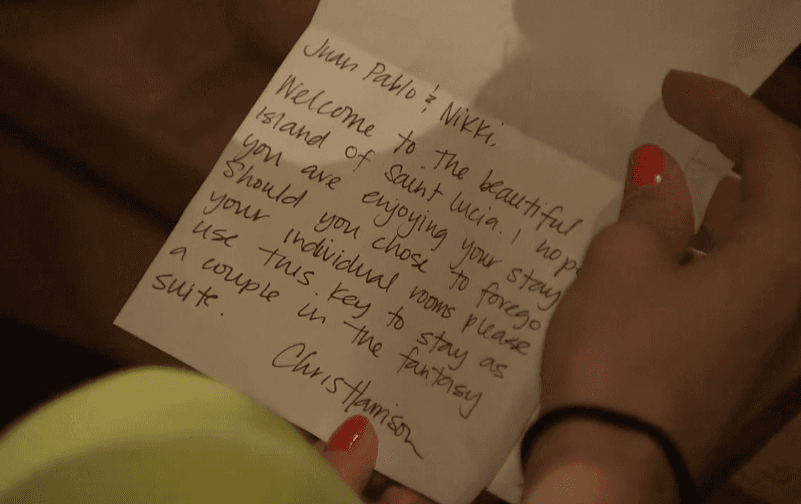 Juan Pablo & Nikki,
Welcome to the beautiful
island of Saint Lucia. I hope
you are enjoying your stay
Should you chose to forego
your individual rooms please
use this key to stay as
a couple in the fantasy
suite.
Chris Harrison